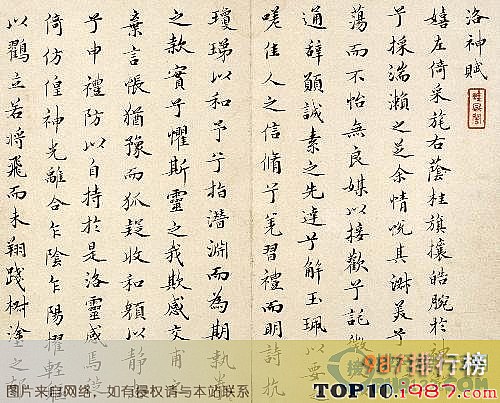 洛神賦
嬉左倚采旄右蔭桂旗攘皓腕於神
兮採湍瀨之芝余情悅其淑美兮
蕩而不怡無良媒以接歡兮託微
通辭願誠素之先達兮解玉珮以要
嗟佳人之信脩兮羌習禮而明詩抗
瓊珶以和予兮指潛淵而為期執
之款實兮懼斯靈之我欺感交甫
棄言悵猶豫而狐疑收和顏以靜
兮申禮防以自持於是洛靈感焉徙
倚仿偟神光離合乍陰乍陽擢輕
以鶴立若將飛而未翔踐椒塗之郁
987排行榜
TOP10.1987.com
图片来自网络，如有侵权请与本站联系